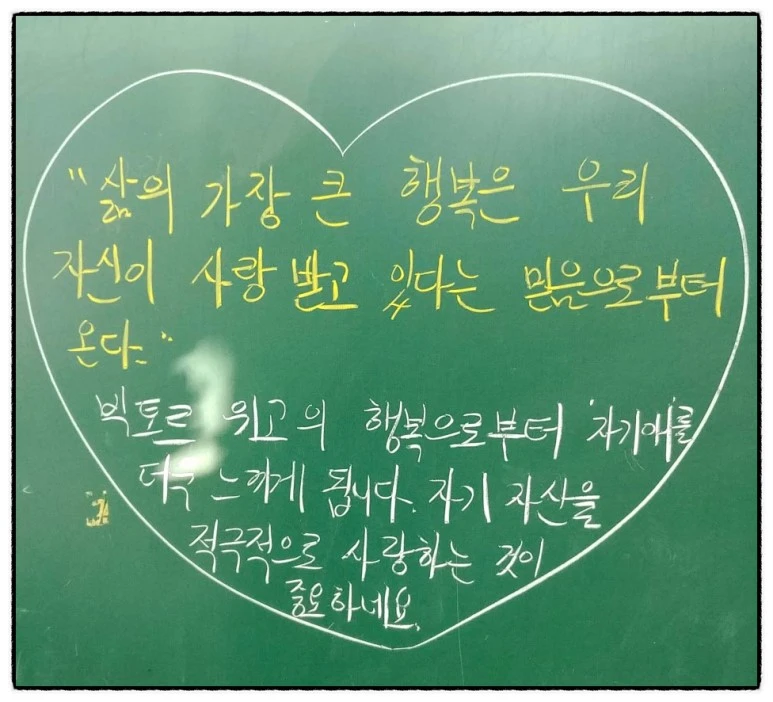 "삶의 가장 큰 행복은 우리
자신이 사랑 받고 있다는 믿음으로부터
온다."
빅토르 위고의 행복으로부터 '자기애'를
더욱 느끼게 됩니다. 자기 자신을
적극적으로 사랑하는 것이
중요하네요.